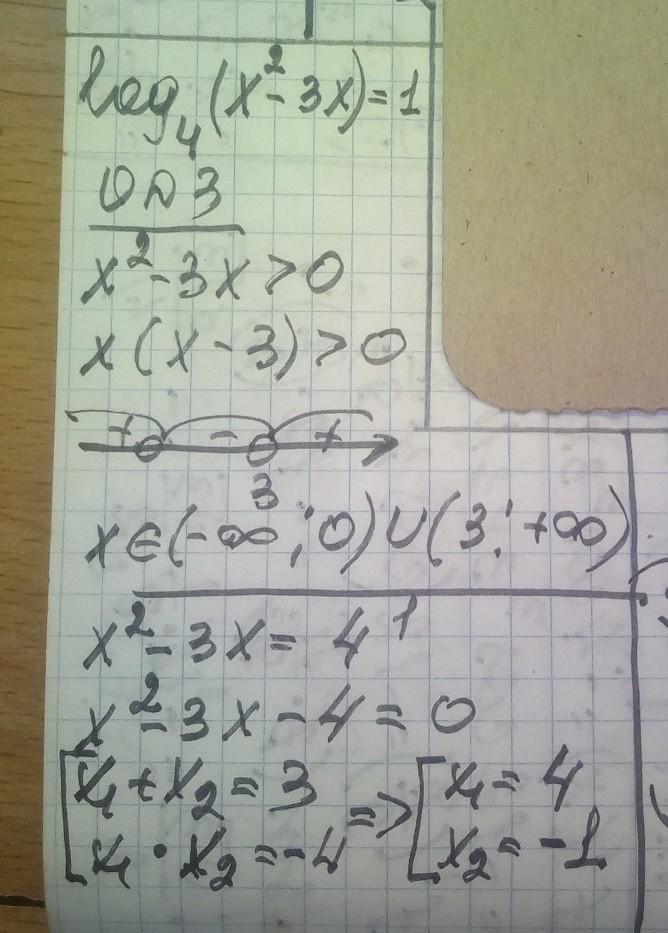 log₄(x²-3x)=1
ОДЗ
x²-3x>0
x(x-3)>0
+ - +
3
x∈(-∞;0)∪(3;+∞)
x²-3x=4¹
x²-3x-4=0
[x₁+x₂=3
x₁·x₂=-4 => [x₁=4
x₂=-1